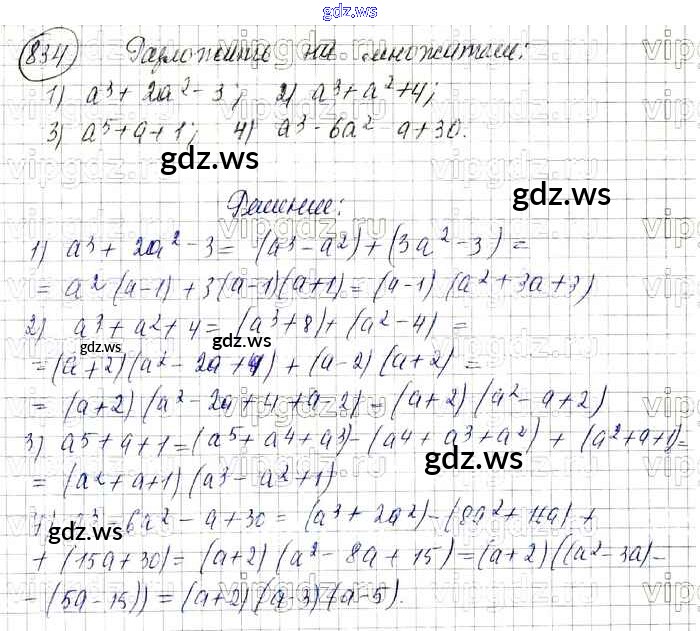 gdz.ws
834) Разложить на множители:
1) a³ + 2a² - 3; 2) a³ + a² + 4;
3) a⁵ + a + 1; 4) a³ - 6a² - a + 30.
gdz.ws
gdz.ws
Решение:
1) a³ + 2a² - 3 = (a³ - a²) + (3a² - 3) =
= a² (a-1) + 3(a-1)(a+1) = (a-1) (a² + 3a + 3)
2) a³ + a² + 4 = (a³ + 8) + (a² - 4) =
gdz.ws
gdz.ws
= (a+2)(a² - 2a + 4) + (a-2) (a+2) =
= (a+2) (a² - 2a + 4 + a - 2) = (a+2) (a² - a + 2)
3) a⁵ + a + 1 = (a⁵ + a⁴ + a³) - (a⁴ + a³ + a²) + (a² + a + 1) =
gdz.ws
= (a² + a + 1) (a³ - a² + 1)
gdz.ws
- 6a² - a + 30 = (a³ + 2a²) - (8a² + 16a) +
+ (15a + 30) = (a+2) (a² - 8a + 15) = (a+2) ((a² - 3a) -
- (5a - 15)) = (a+2) (a-3) (a-5).
gdz.ws